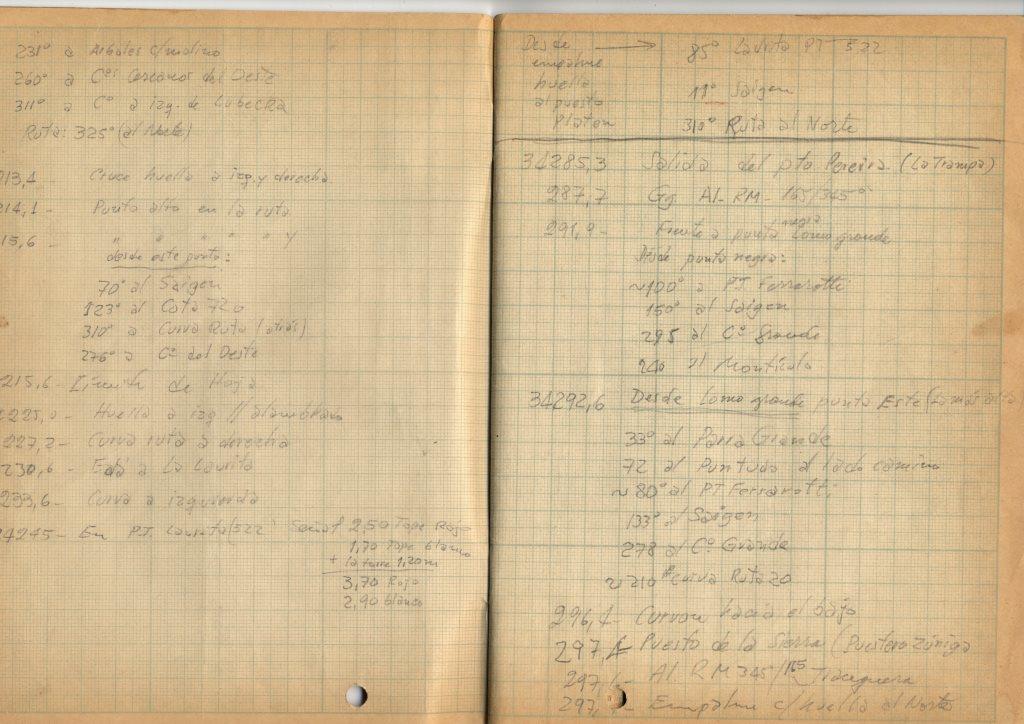 231° a Arboles c/molino
260° a C°s Cercanos del Oeste
311° a C° a izq. de Lubecka
Ruta: 325° (al Norte)
213,4 Cruce huella a izq. y derecha
214,1 - Punto alto en la ruta
15,6 - " " " " " y
desde este punto:
70° al Saigon
123° al Cota 720
310° a Curva Ruta (atrás)
276° a C° del Oeste
215,6 - Limite de Hoja
225,0 - Huella a izq // alambrado
227,2 - Curva ruta a derecha
230,6 - a La Laurita
233,6 - Curva a izquierda
24245 - En P.T. Laurita (522) Señal 2,50 Tope Rojo
1,70 Tope blanco
+ la torre 1,20m
3,70 Rojo
2,90 blanco
Desde empalme huella al puesto Platen → 85° Laurita PT 522
11° Saigon
310° Ruta al Norte
34285,3 Salida del pto. Pereira. (La Trampa)
287,7 Gg. Al. RM - 165/345°
291,9 - Frente a punta negra Loma grande
Desde punta negra:
~100° a P.T. Ferrarotti
150° al Saigon
295 al C° Grande
240 al Monticulo
34292,6 Desde Loma grande punta Este (La más alta)
33° al Pampa Grande
72 al Puntudo al lado camino
~ 80° al PT Ferrarotti
133° al Saigon
278 al C° Grande
~ 210° Curva Ruta 20
296,1 - Curva hacia el bajo
297,1 - Puesto de la Sierra (Puestero Zúñiga
297,1 - Al. RM 345/165
297,1 - Empalme c/huella al Norte